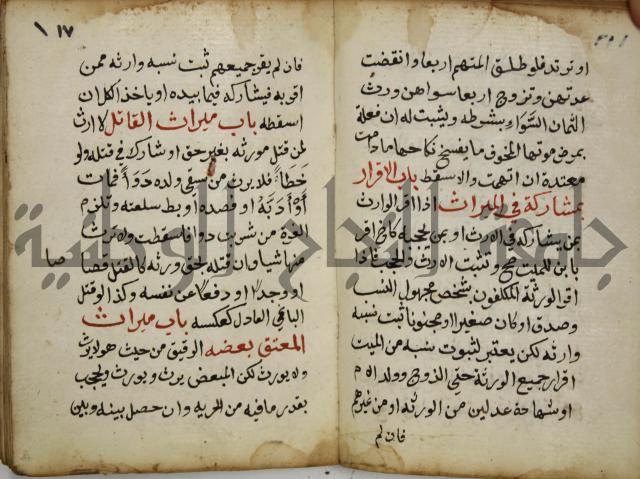 او ترتد فلو طلق المتهم اربعا وانقضت
عدتهن وتزوج اربعا سواهن ورث
الثمان السواء بشرطه ويثبت له ان فعلة
بمرض موتها المخوف ما يفسخ نكاحها مادامت
معتدة ان اتهمت والا سقط باب الاقرار
بمشاركة في الميراث اذا اقر الوارث
بمن يشاركه في الارث او بمن يحجبه كاخ اقر
بابن للميت صح وثبت الارث والحجب فاذا
اقر الورثة المكلفون بشخص مجهول النسب
وصدق او كان صغيرا او مجنونا ثبت نسبه
وارثه لكن يعتبر لثبوت نسبه من الميت
اقرار جميع الورثة حتى الزوج وولد الام
او شهادة عدلين من الورثه او من غيرهم
فان لم
١١٧
فان لم يقر جميعهم ثبت نسبه وارثه ممن
اقر به فيشاركه فيما بيده او ياخذ الكل ان
اسقطه باب ميراث القاتل لا ارث
لمن قتل مورثه بغير حق او شارك في قتله ولو
خطأ فلا يرث من سقى ولده دواء فمات
او ادبه او فصده او بط سلعته وتلزم
الغرة من شربت دوا فاسقطت ولا ترث
منها شيا وان قتله بحق ورثه كالقتل قصا
صا
او وحدا او دفعا عن نفسه وكذا لو قتل
الباغي العادل كعكسه باب ميراث
المعتق بعضه الرقيق من حيث هو لا يرث
ولا يورث لكن المبعض يرث ويورث ويحجب
بقدر ما فيه من الحريه وان حصل بينه وبين
جامعة النجاح الوطنية